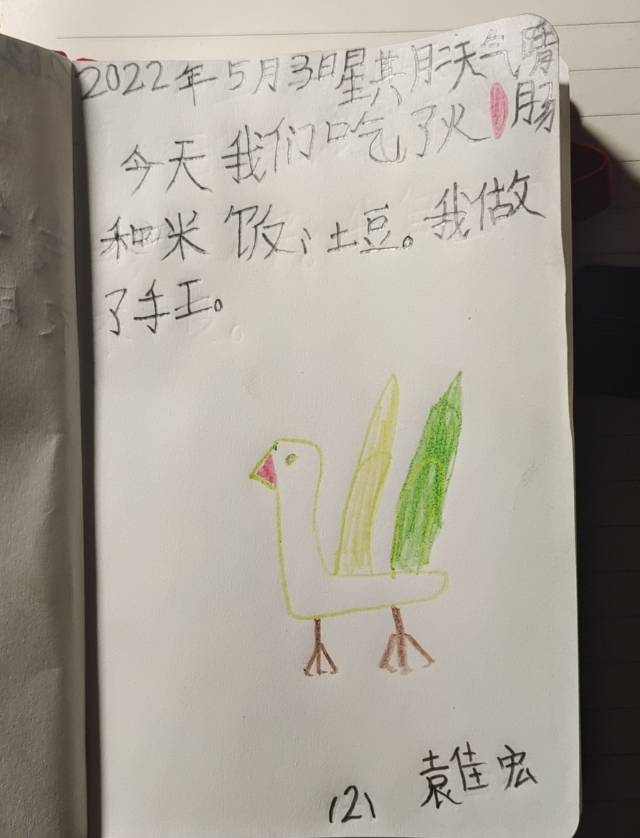 2022年5月3日星期二天气晴
今天我们吃了火肠
和米饭、土豆。我做
了手工。
(2) 袁佳宏